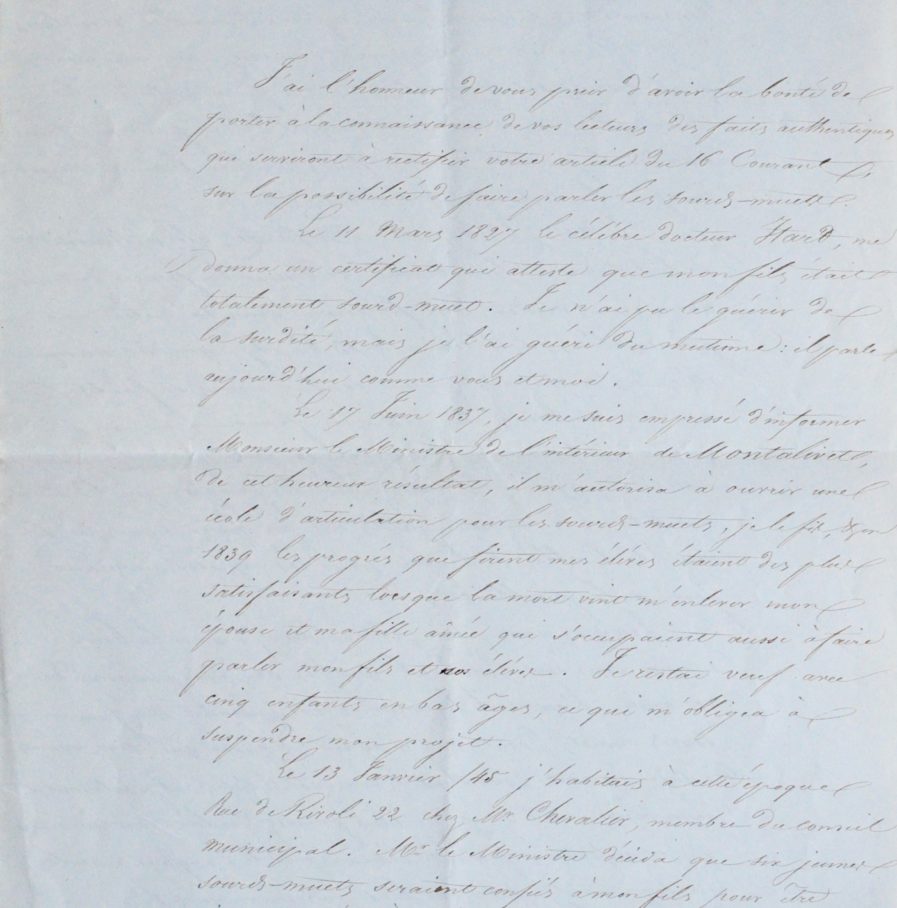 J'ai l'honneur de vous prier d'avoir la bonté de
porter à la connaissance de vos lecteurs des faits authentiques
que serviront à rectifier votre article du 16 Courant
sur la possibilité de faire parler les sourds-muets.
Le 11 Mars 1827 le célèbre docteur Itard, me
donna un certificat qui atteste que mon fils était
totalement sourd-muet. Je n'ai pu le guérir de
la surdité, mais je l'ai guéri du mutisme : il parle
aujourd'hui comme vous et moi.
Le 17 Juin 1837, je me suis empressé d'informer
Monsieur le Ministre de l'intérieur de Montalivet,
de cet heureux résultat, il m'autorisa à ouvrir une
école d'articulation pour les sourds-muets, je le fis, & en
1839 les progrès que firent mes élèves étaient des plus
satisfaisants lorsque la mort vint m'enlever mon
épouse et ma fille aînée qui s'occupaient aussi à faire
parler mon fils et nos élèves. Je restai veuf avec
cinq enfants en bas âges, ce qui m'obligea à
suspendre mon projet.
Le 13 Janvier /45 j'habitais à cette époque
Rue de Rivoli 22 chez Mr Chevalier, membre du conseil
municipal. Mr le Ministre décida que six jeunes
sourds-muets seraient confiés à mon fils pour être